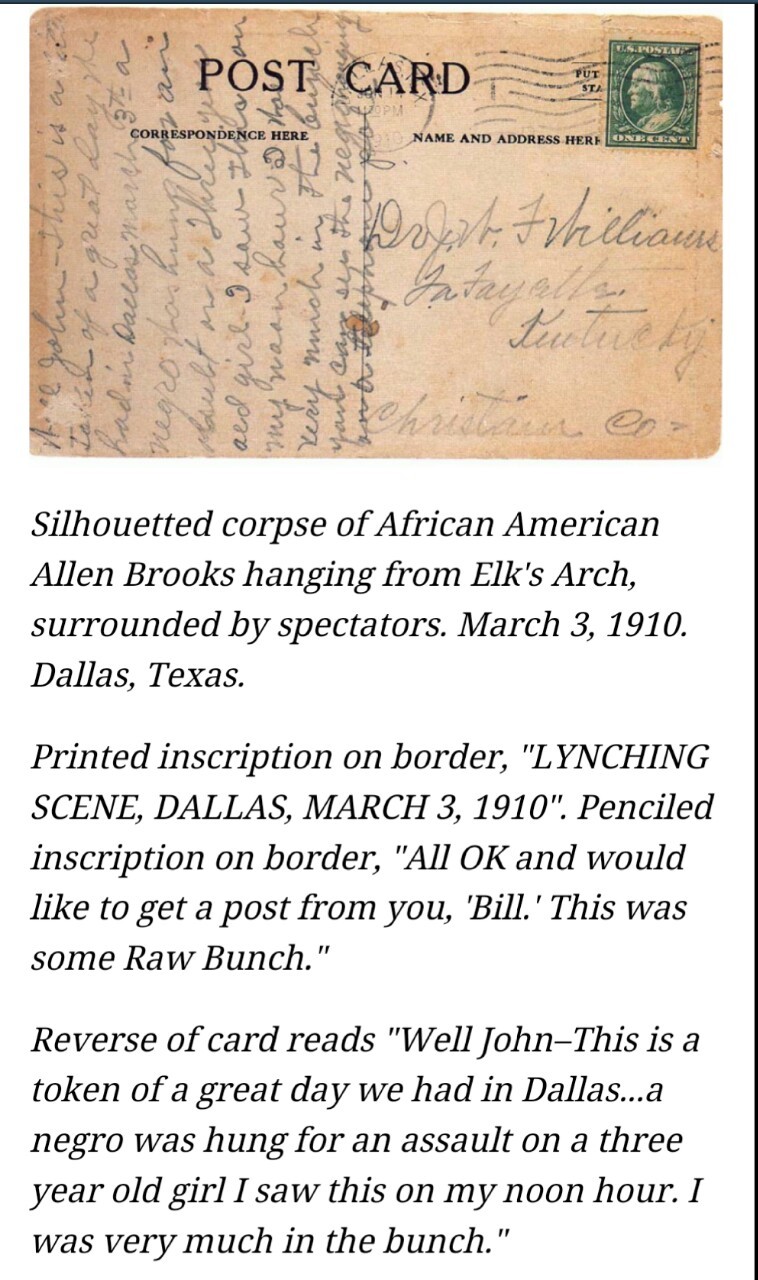 POST CARD
CORRESPONDENCE HERE
NAME AND ADDRESS HERE
PUT
STA
U.S. POSTAGE
ONE CENT
Well John—This is a
token of a great day we
had in Dallas March 3rd a
negro was hung for an
asault on a three year
old girl I saw this on
my noon hour I was
very much in the bunch
you can see the negro hanging
on a telephone pole
Dr J.W. F Williams
LaFayette
Kentucky
Christian Co-
Silhouetted corpse of African American
Allen Brooks hanging from Elk's Arch,
surrounded by spectators. March 3, 1910.
Dallas, Texas.
Printed inscription on border, "LYNCHING
SCENE, DALLAS, MARCH 3, 1910". Penciled
inscription on border, "All OK and would
like to get a post from you, 'Bill.' This was
some Raw Bunch."
Reverse of card reads "Well John–This is a
token of a great day we had in Dallas...a
negro was hung for an assault on a three
year old girl I saw this on my noon hour. I
was very much in the bunch."